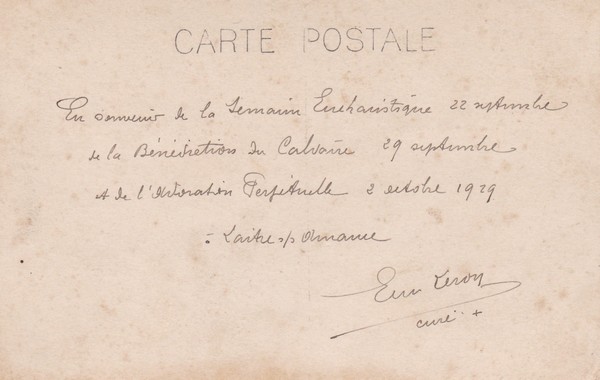 CARTE POSTALE
En souvenir de la Semaine Eucharistique 22 septembre
de la Bénédiction du Calvaire 29 septembre
et de l'Adoration Perpétuelle 2 octobre 1929
à Laitre s/s Amance
Em Leroy
curé +